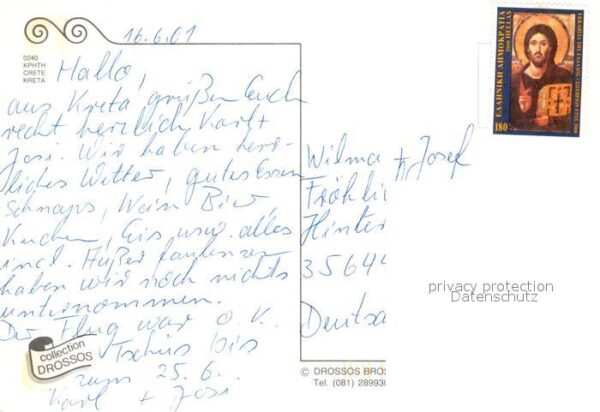 16.6.01
0240
ΚΡΗΤΗ
CRETE
KRETA
Hallo,
aus Kreta grüßen Euch
recht herzlich Karl +
Josi. Wir haben herr-
liches Wetter, gutes Essen
Schnaps, Wein Bier
Kuchen, Eis usw. alles
incl. Außer faulenzen
haben wir noch nichts
unternommen.
Der Flug war o.k.
Tschüs bis
zum 25.6.
Karl + Josi
collection
DROSSOS
ΕΛΛΗΝΙΚΗ ΔΗΜΟΚΡΑΤΙΑ
2000 HELLAS
180
Wilma + Josef
Fröhli
Hinter
3564
Deutsc
privacy protection
Datenschutz
© DROSSOS BROS
Tel. (081) 28993